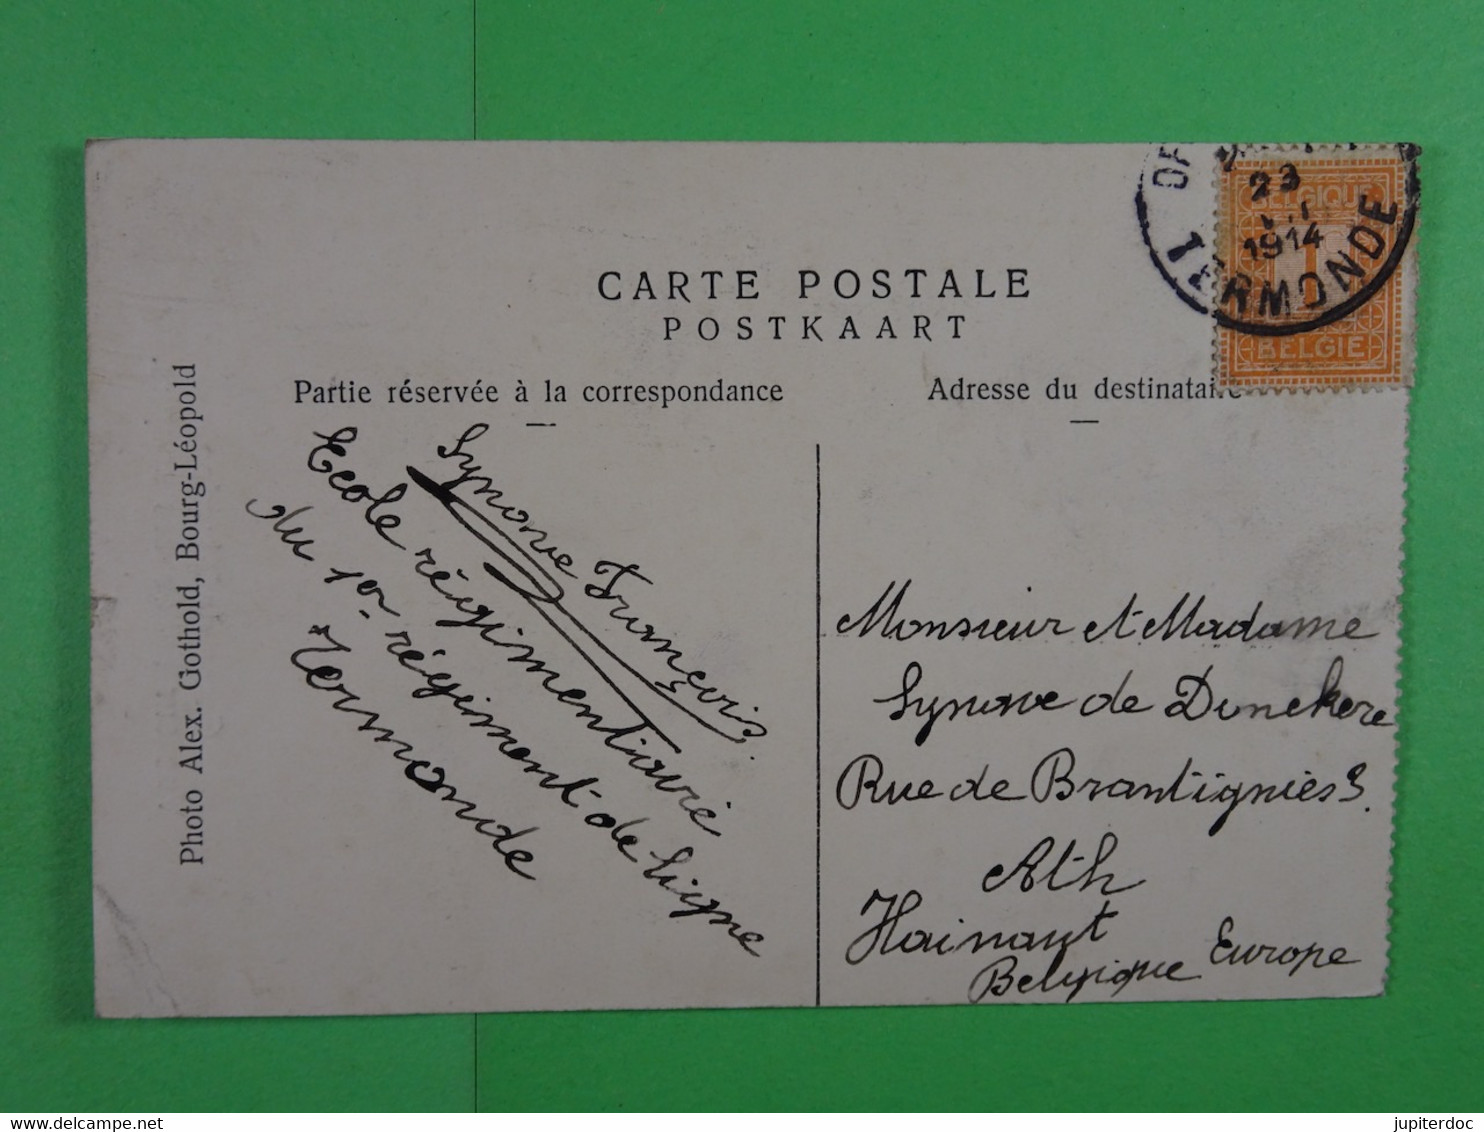 CARTE POSTALE
POSTKAART
Partie réservée à la correspondance
Adresse du destinataire
Photo Alex. Gothold, Bourg-Léopold
Synove François
Ecole régimentiare
du 1er régiment de ligne
Termonde
Monsieur et Madame
Synove de Donckere
Rue de Brantignies 3.
Ath
Hainaut
Belgique Europe
BELGIQUE
1
BELGIE
23
1914
TERMONDE
jupiterdoc